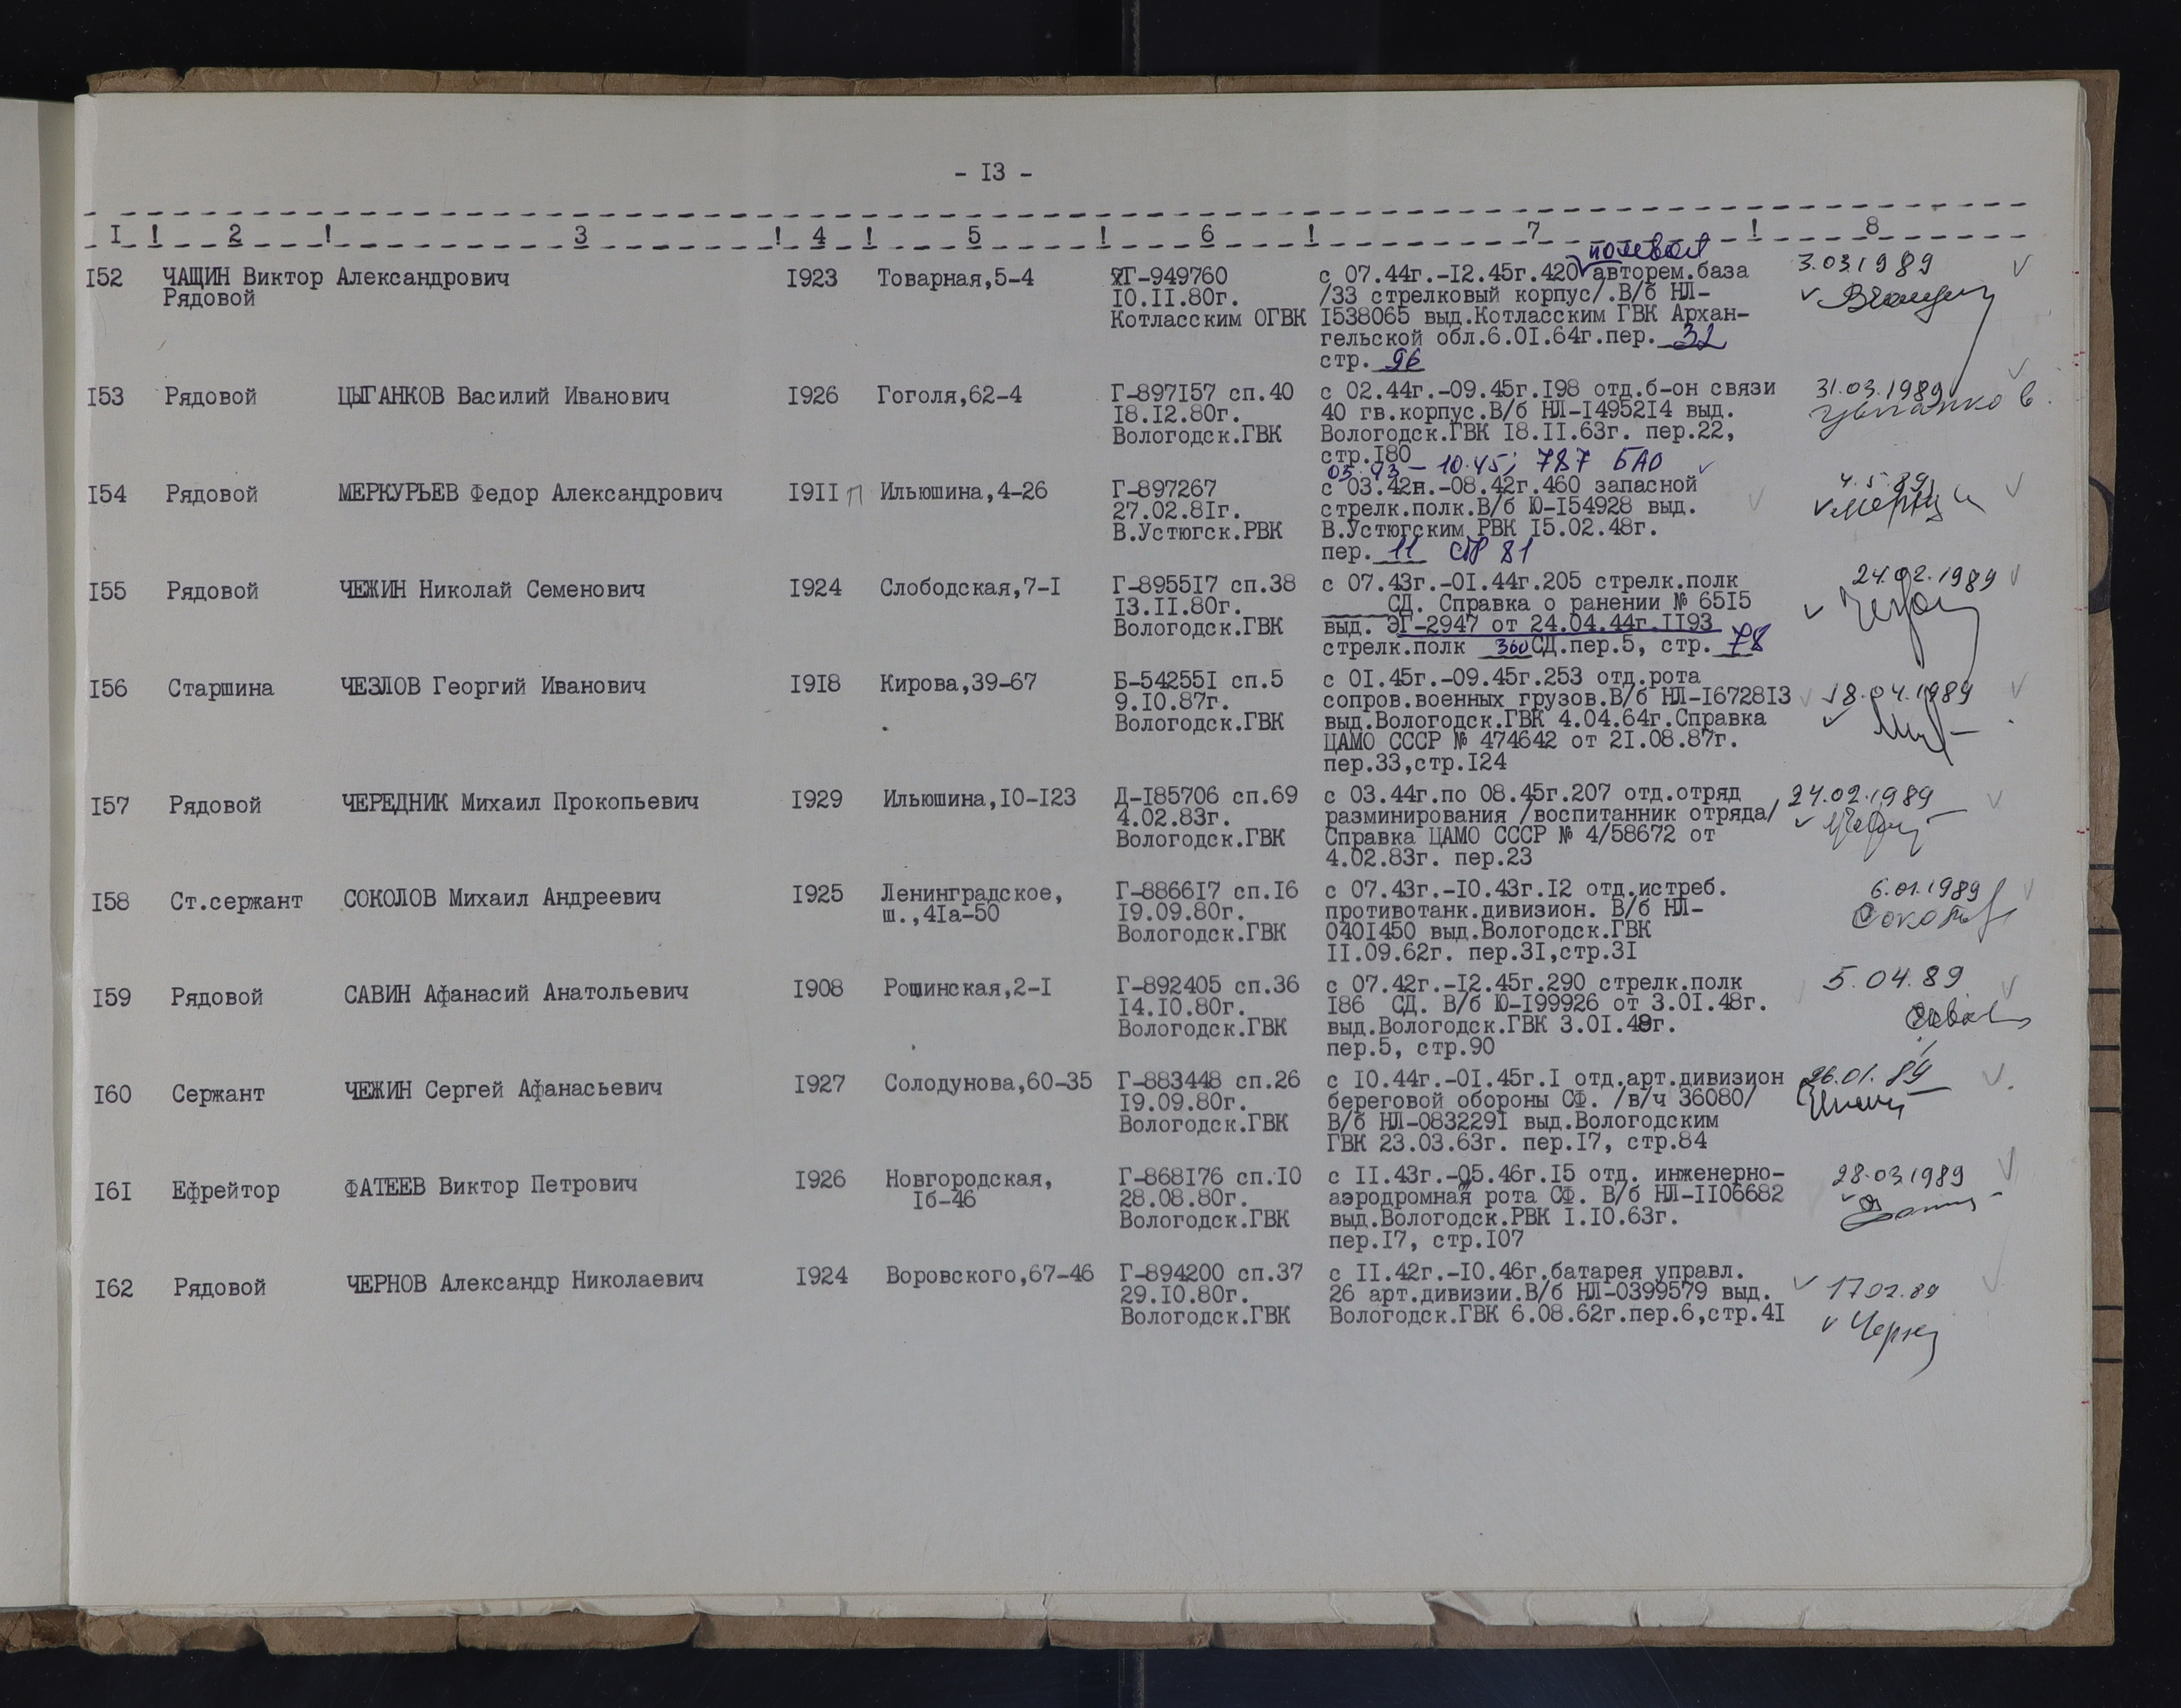 - I3 -
I ! 2 ! 3 ! 4 ! 5 ! 6 ! 7 ! 8
полевая
I52 ЧАЩИН Виктор Александрович I923 Товарная,5-4 Г-949760 с 07.44г.-I2.45г.420 авторем.база 3.03.1989
Рядовой I0.II.80г. /33 стрелковый корпус/.В/б НЛ-
Котласским ОГВК I538065 выд.Котласским ГВК Архан-
гельской обл.6.0I.64г.пер. 32
стр. 96
I53 Рядовой ЦЫГАНКОВ Василий Иванович I926 Гоголя,62-4 Г-897I57 сп.40 с 02.44г.-09.45г.I98 отд.б-он связи 31.03.1989
I8.I2.80г. 40 гв.корпус.В/б НЛ-I4952I4 выд. Цыганков
Вологодск.ГВК Вологодск.ГВК I8.II.63г. пер.22,
стр.I80
03.43 - 10.45; 787 БАО
I54 Рядовой МЕРКУРЬЕВ Федор Александрович I9II п Ильюшина,4-26 Г-897267 с 03.42н.-08.42г.460 запасной 4.5.89
27.02.8Iг. стрелк.полк.В/б Ю-I54928 выд.
В.Устюгск.РВК В.Устюгским РВК I5.02.48г.
пер. 11 стр 81
I55 Рядовой ЧЕЖИН Николай Семенович I924 Слободская,7-I Г-8955I7 сп.38 с 07.43г.-0I.44г.205 стрелк.полк 24.02.1989
I3.II.80г. СД. Справка о ранении № 65I5
Вологодск.ГВК выд. ЭГ-2947 от 24.04.44г.II93
стрелк.полк 360 СД.пер.5, стр. 78
I56 Старшина ЧЕЗЛОВ Георгий Иванович I9I8 Кирова,39-67 Б-54255I сп.5 с 0I.45г.-09.45г.253 отд.рота 18.04.1989
9.I0.87г. сопров.военных грузов.В/б НЛ-I6728I3
Вологодск.ГВК выд.Вологодск.ГВК 4.04.64г.Справка
ЦАМО СССР № 474642 от 2I.08.87г.
пер.33,стр.I24
I57 Рядовой ЧЕРЕДНИК Михаил Прокопьевич I929 Ильюшина,I0-I23 Д-I85706 сп.69 с 03.44г.по 08.45г.207 отд.отряд 24.02.1989
4.02.83г. разминирования /воспитанник отряда/
Вологодск.ГВК Справка ЦАМО СССР № 4/58672 от
4.02.83г. пер.23
I58 Ст.сержант СОКОЛОВ Михаил Андреевич I925 Ленинградское, Г-8866I7 сп.I6 с 07.43г.-I0.43г.I2 отд.истреб. 6.01.1989
ш.,4Iа-50 I9.09.80г. противотанк.дивизион. В/б НЛ- Соколов
Вологодск.ГВК 040I450 выд.Вологодск.ГВК
II.09.62г. пер.3I,стр.3I
I59 Рядовой САВИН Афанасий Анатольевич I908 Рощинская,2-I Г-892405 сп.36 с 07.42г.-I2.45г.290 стрелк.полк 5.04.89
I4.I0.80г. I86 СД. В/б Ю-I99926 от 3.0I.48г.
Вологодск.ГВК выд.Вологодск.ГВК 3.0I.48г.
пер.5, стр.90
I60 Сержант ЧЕЖИН Сергей Афанасьевич I927 Солодунова,60-35 Г-883448 сп.26 с I0.44г.-0I.45г.I отд.арт.дивизион 26.01.89
I9.09.80г. береговой обороны СФ. /в/ч 36080/
Вологодск.ГВК В/б НЛ-083229I выд.Вологодским
ГВК 23.03.63г. пер.I7, стр.84
I6I Ефрейтор ФАТЕЕВ Виктор Петрович I926 Новгородская, Г-868I76 сп.I0 с II.43г.-05.46г.I5 отд. инженерно- 28.03.1989
Iб-46 28.08.80г. аэродромная рота СФ. В/б НЛ-II06682
Вологодск.ГВК выд.Вологодск.РВК I.I0.63г.
пер.I7, стр.I07
I62 Рядовой ЧЕРНОВ Александр Николаевич I924 Воровского,67-46 Г-894200 сп.37 с II.42г.-I0.46г.батарея управл.
29.I0.80г. 26 арт.дивизии.В/б НЛ-0399579 выд. 17.02.89
Вологодск.ГВК Вологодск.ГВК 6.08.62г.пер.6,стр.4I